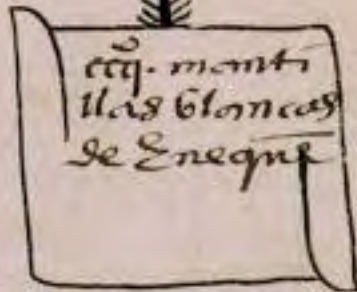 cccc. manti
llas blancas
de Eneque~